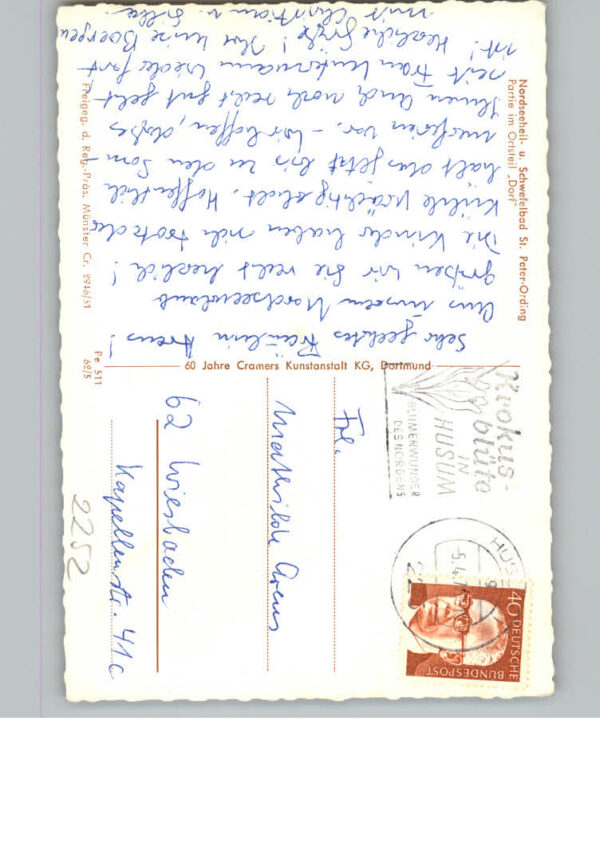 Nordseeheil- u. Schwefelbad St. Peter-Ording
Partie im Ortsteil „Dorf"
Sehr geehrtes Fräulein Arens!
Aus unserem Nordseeurlaub
grüßen wir Sie recht herzlich!
Die Kinder haben sich trotz der
Kühle prächtig erholt. Hoffentlich
hält das jetzt bis zu den Som-
merferien vor. – Wir hoffen, daß es
Ihnen auch noch recht gut geht
seit Frau Unkermann wieder fort
ist! Herzliche Grüße! Ihre Luise
mit Christian u. Silke
Freigeg. d. Reg.-Präs. Münster Cr. 2946/31
60 Jahre Cramers Kunstanstalt KG, Dortmund
Pe 511
62/5
Krokus-
blüte
IN
HUSUM
BLUMENWUNDER
DES NORDENS
HUS
-5.4.7
22
40
DEUTSCHE
BUNDESPOST
Frl.
Mathilde Arens
62 Wiesbaden
Kapellenstr. 41c
2252